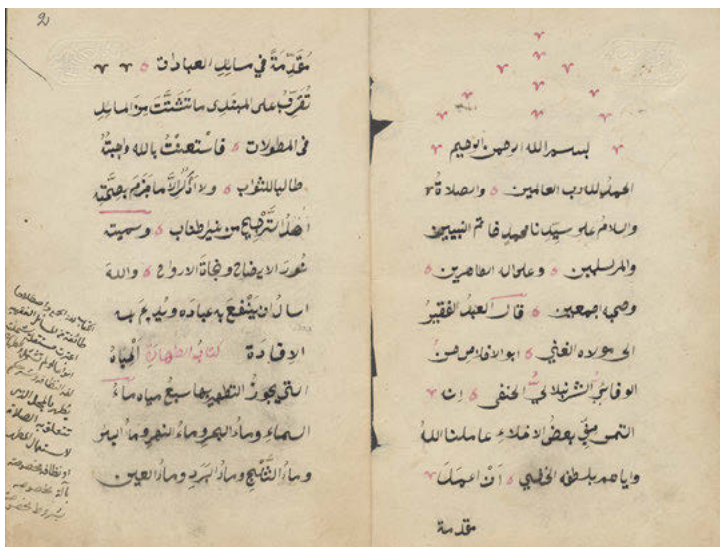 بسم الله الرحمن الرحيم
الحمد لله رب العالمين والصلاة
والسلام على سيدنا محمد خاتم النبيين
والمرسلين وعلى اله الطاهرين
وصحبه اجمعين قال العبد الفقير
الى مولاه الغني ابو الاخلاص حسن
الوفائي الشرنبلالي الحنفي ان
التمس مني بعض الاخلاء عاملنا الله
واياهم بلطفه الخفي أن اعمل
مقدمة
2
مُقَدِّمَةً في مسايل العبادات
تُقَرِّبُ على المبتدى ما تَشَتَّتَ مِنَ المسايل
فى المطولات فاسْتعنْتُ بالله واجبتُهُ
طالبا للثواب ولا أذكُرُ الاَّ ما جَزَمَ بصِحَّتِه
أهلُ التَّرجِيحِ من غير اطناب وسميته
نُورَ الايضاح ونجاةَ الارواح واللهَ
اسالُ ان يَنْفَعَ به عباده ويُدِيمَ به
الافادة كتابُ الطهارة المِياهُ
التى يجوزُ التطهير بها سبعُ مياه ماءُ
السماء وماءُ البحر وماءُ النهر وماءُ البئر
وماءُ الثَّلْجِ وماءُ البَرَدِ وماءُ العين
الكتاب لغة الجمع واصطلاحا
طائفة من المسائل الفقهية
اعتبرت مستقلة
تتعلق به الصلاة
مخصوصة
بشروط مخصوصة